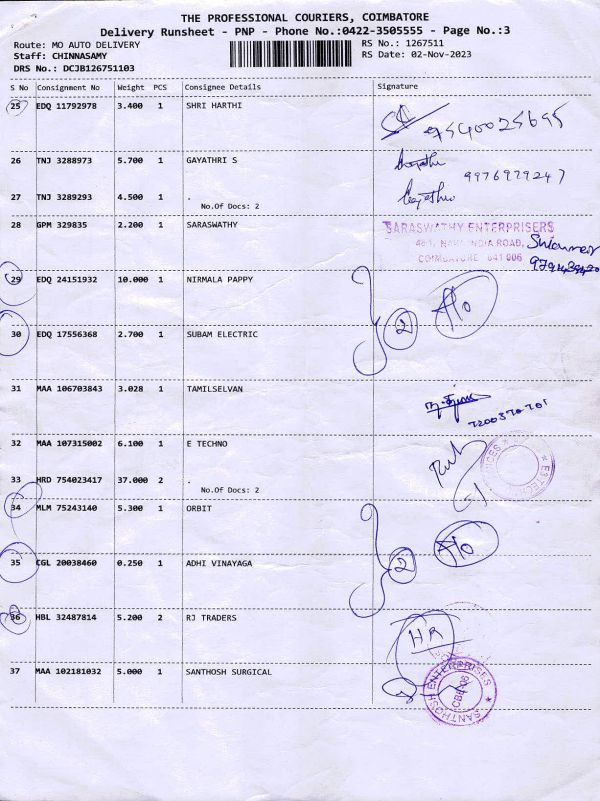 THE PROFESSIONAL COURIERS, COIMBATORE
Delivery Runsheet - PNP - Phone No.:0422-3505555 - Page No.:3
Route: MO AUTO DELIVERY
RS No.: 1267511
Staff: CHINNASAMY
RS Date: 02-Nov-2023
DRS No.: DCJB126751103
S No Consignment No Weight PCS Consignee Details Signature
25 EDQ 11792978 3.400 1 SHRI HARTHI
9540025695
26 TNJ 3288973 5.700 1 GAYATHRI S
Gayathri 9976979247
27 TNJ 3289293 4.500 1 .
No.Of Docs: 2
28 GPM 329835 2.200 1 SARASWATHY
SARASWATHY ENTERPRISERS
COIMBATORE 641 006
29 EDQ 24151932 10.000 1 NIRMALA PAPPY
2
30 EDQ 17556368 2.700 1 SUBAM ELECTRIC
31 MAA 106703843 3.028 1 TAMILSELVAN
32 MAA 107315002 6.100 1 E TECHNO
33 HRD 754023417 37.000 2 .
No.Of Docs: 2
34 MLM 75243140 5.300 1 ORBIT
2
35 CGL 20038460 0.250 1 ADHI VINAYAGA
36 HBL 32487814 5.200 2 RJ TRADERS
HR
37 MAA 102181032 5.000 1 SANTHOSH SURGICAL
SANTHOSH ENTERPRISES